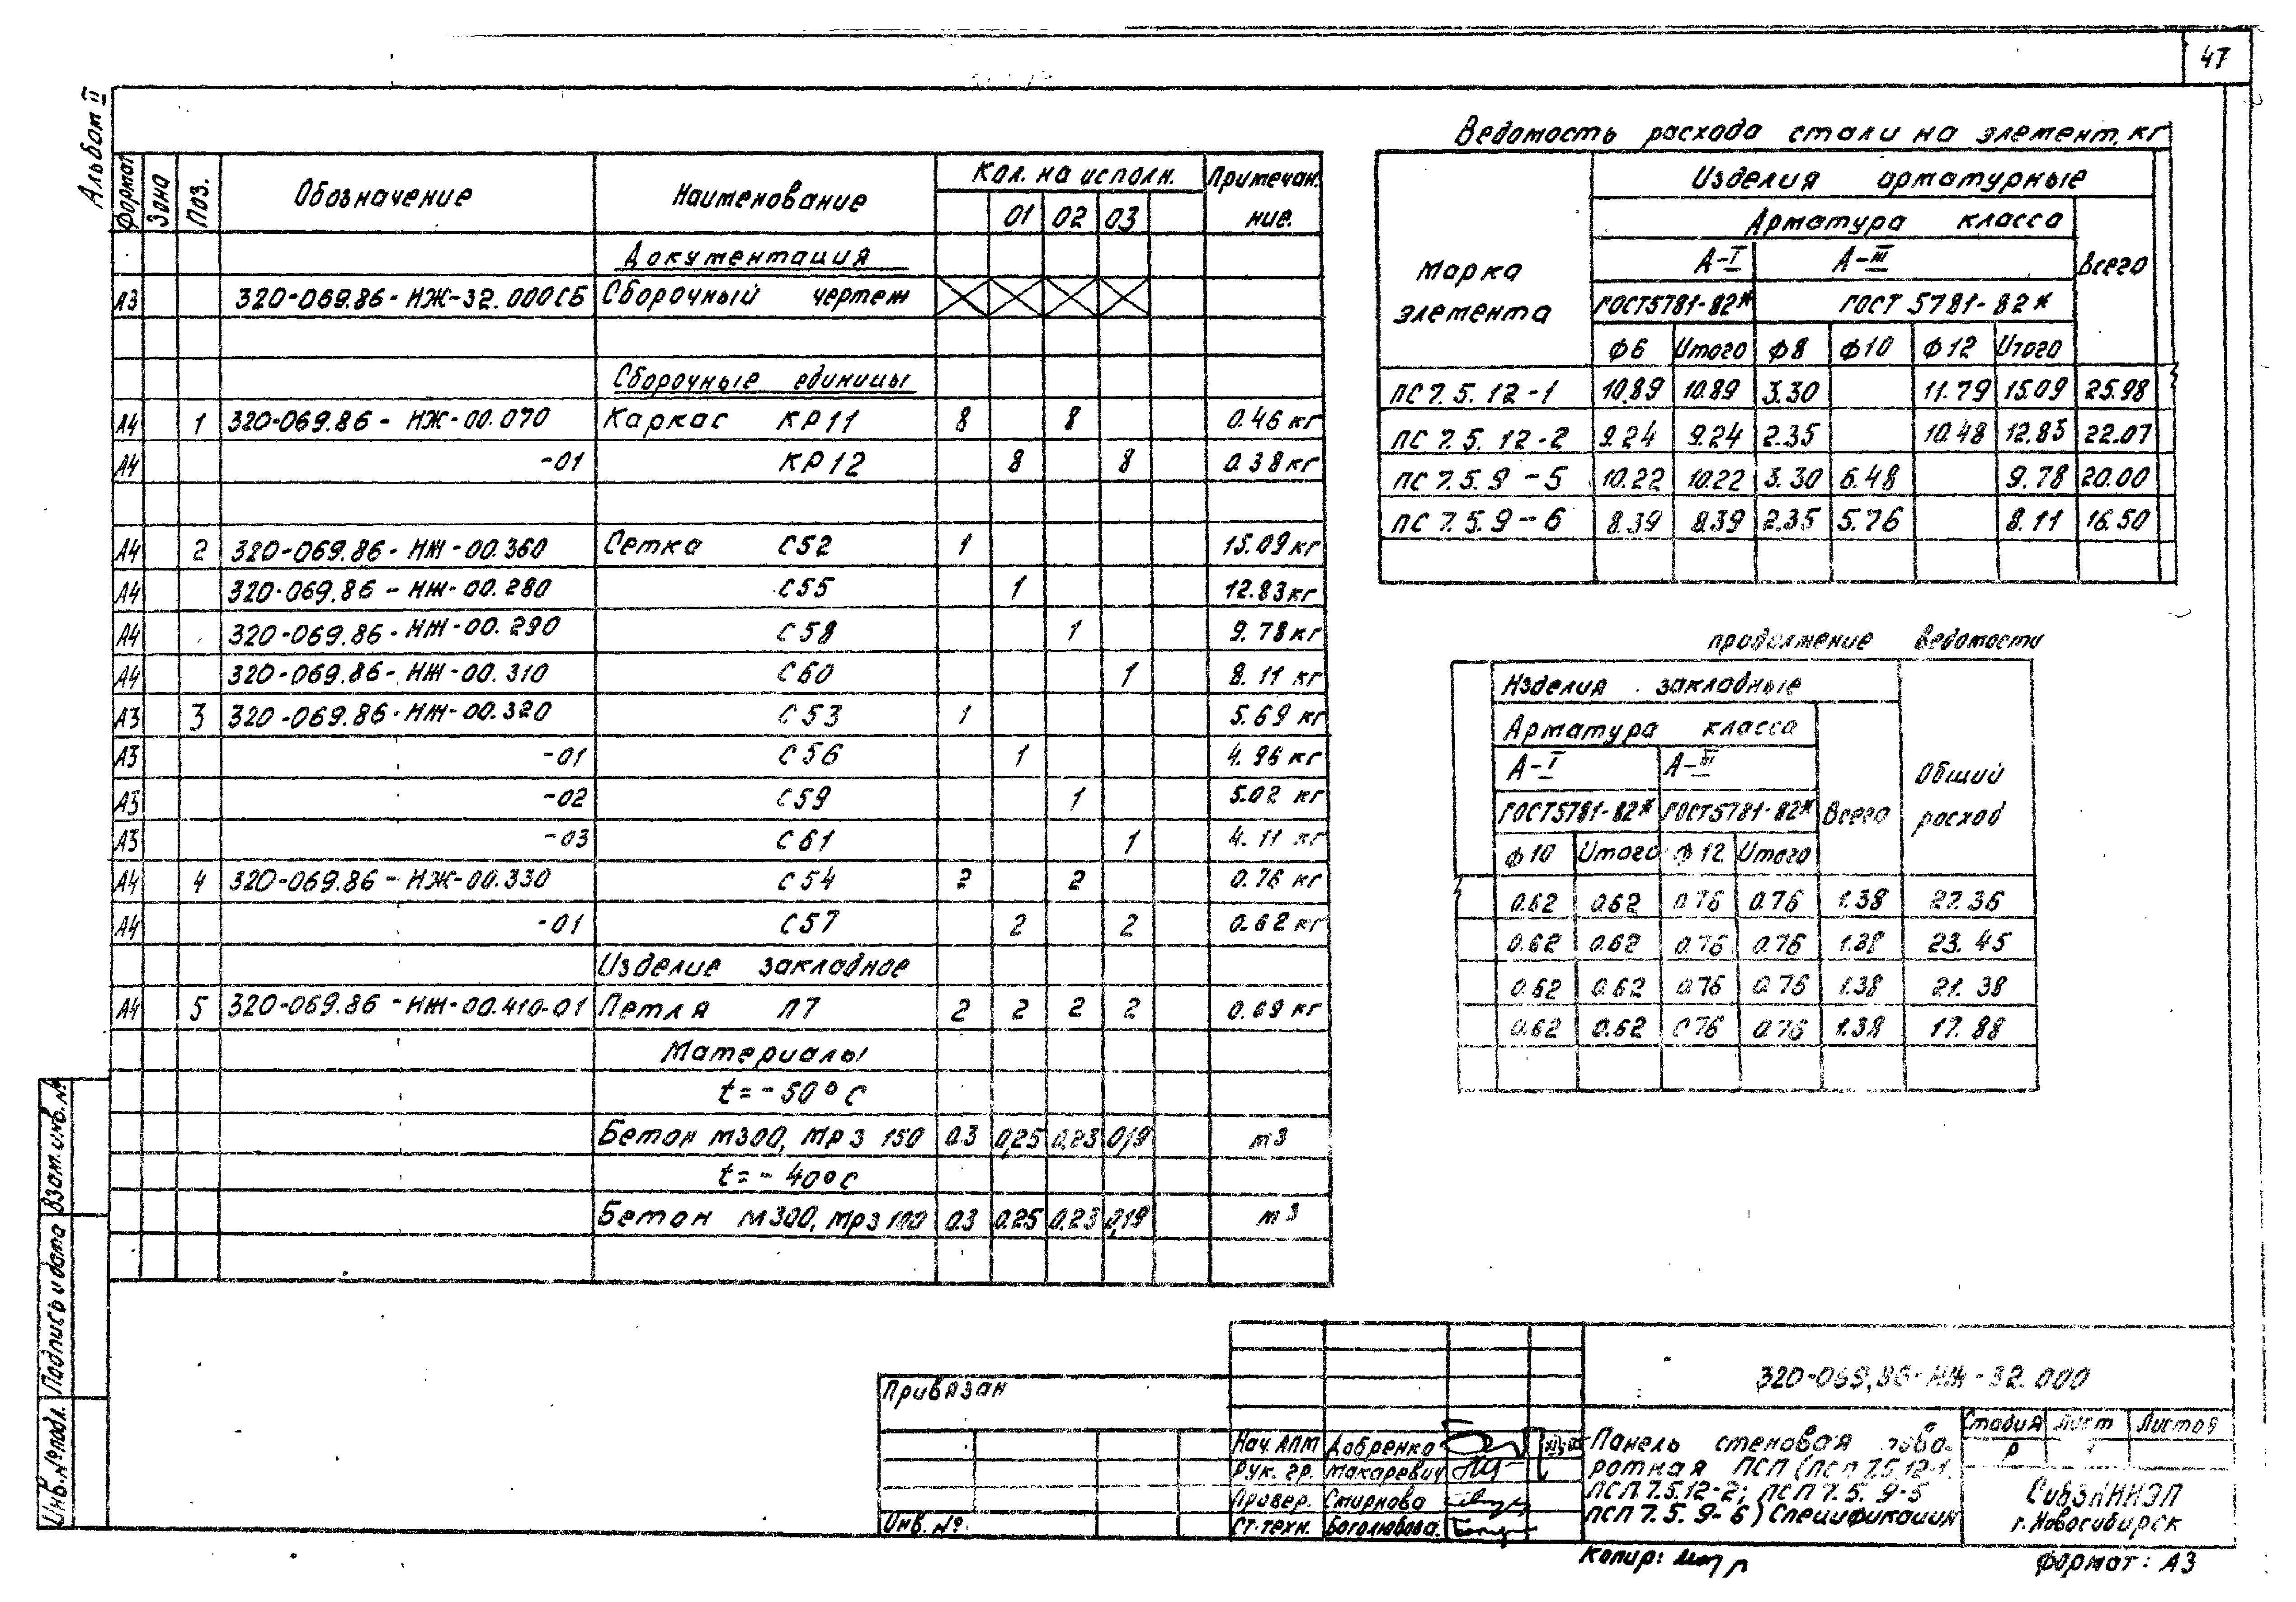 47
Альбом II
Формат Зона Поз. Обозначение Наименование Кол. на исполн. Примечание.
01 02 03
Документация
А3 320-069.86-НЖ-32.000СБ Сборочный чертеж
Сборочные единицы
А4 1 320-069.86-НЖ-00.070 Каркас КР11 8 8 0.46 кг
А4 -01 КР12 8 8 0.38 кг
А4 2 320-069.86-НЖ-00.360 Сетка С52 1 15.09 кг
А4 320-069.86-НЖ-00.280 С55 1 12.83 кг
А4 320-069.86-НЖ-00.290 С58 1 9.78 кг
А4 320-069.86-НЖ-00.310 С60 1 8.11 кг
А3 3 320-069.86-НЖ-00.320 С53 1 5.69 кг
А3 -01 С56 1 4.96 кг
А3 -02 С59 1 5.02 кг
А3 -03 С61 1 4.11 кг
А4 4 320-069.86-НЖ-00.330 С54 2 2 0.76 кг
А4 -01 С57 2 2 0.62 кг
Изделие закладное
А4 5 320-069.86-НЖ-00.410-01 Петля П7 2 2 2 2 0.69 кг
Материалы
t=-50°С
Бетон М300, Мрз 150 0.3 0,25 0.23 0,19 м3
t=-40°С
Бетон М300, Мрз 100 0.3 0.25 0.23 0,19 м3
Ведомость расхода стали на элемент, кг
Марка элемента Изделия арматурные
Арматура класса Всего
А-I А-III
ГОСТ5781-82* ГОСТ 5781-82*
ф6 Итого ф8 ф10 ф12 Итого
ПС 7.5.12-1 10.89 10.89 3.30 11.79 15.09 25.98
ПС 7.5.12-2 9.24 9.24 2.35 10.48 12.83 22.07
ПС 7.5.9-5 10.22 10.22 3.30 6.48 9.78 20.00
ПС 7.5.9-6 8.39 8.39 2.35 5.76 8.11 16.50
продолжение ведомости
Изделия закладные
Арматура класса
А-I А-III Общий расход
ГОСТ5781-82* ГОСТ5781-82* Всего
ф10 Итого ф12 Итого
0.62 0.62 0.76 0.76 1.38 27.36
0.62 0.62 0.76 0.76 1.38 23.45
0.62 0.62 0.76 0.76 1.38 21.38
0.62 0.62 0.76 0.76 1.38 17.88
Взам.инв.№
Подпись и дата
Инв.№подл.
Привязан
Инв.№
320-069,86-НЖ-32.000
Нач.АПМ Добренко
Рук. гр. Макаревич
Провер. Смирнова
Ст.техн. Боголюбова
Панель стеновая пово-
ротная ПСП (псп 7.5.12-1
псп 7.5.12-2; псп 7.5.9-5
псп 7.5.9-6) Спецификация
Стадия Лист Листов
Р
СибЗНИИЭП
г.Новосибирск
Копир:
Формат: А3